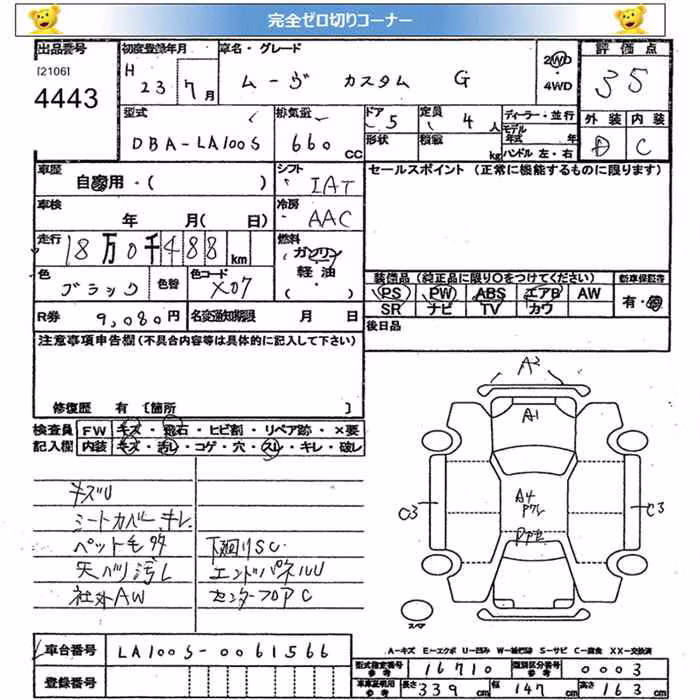 完全ゼロ切りコーナー
出品番号 初度登録年月 車名・グレード 評価点
[2106] H 23 7月 ムーヴ カスタム G 2WD・4WD 35
4443
型式 排気量 ドア 定員 ディーラー・並行 外装 内装
DBA-LA100S 660 CC 5 4人 モデル年式 年 D C
形状 積載 kg ハンドル 左・右
車歴 シフト セールスポイント (正常に機能するものに限ります)
自家用・( ) IAT
車検 年 月( 日) 冷房 AAC
走行 18万0千488km 燃料 ガソリン・軽油・( )
色 ブラック 色替 色コード X07 装備品 (純正品に限り○をつけてください) 新車保証書
PS PW ABS エアB AW 有・無
SR ナビ TV カワ
R券 9,080円 名変通知期限 月 日 後日品
注意事項申告欄(不具合内容等は具体的に記入して下さい)
修復歴 有 〔箇所 〕
検査員 FW キズ・飛石・ヒビ割・リペア跡・×要
記入欄 内装 キズ・汚レ・コゲ・穴・スレ・キレ・破レ
A2
A1
キズU
シートカバー キレ
ペット毛多 下廻りSC
天バリ汚レ エンドパネルU
社外AW センターフロアC
C3 A4 C3
スペア
A-キズ E-エクボ U-凹み W-補修跡 S-サビ C-腐食 XX-交換済
車台番号 LA100S-0061566
型式指定番号 参考 16710 類別区分番号 参考 0003
登録番号 車庫証明用 参考 長さ 339cm 幅 147cm 高さ 163cm